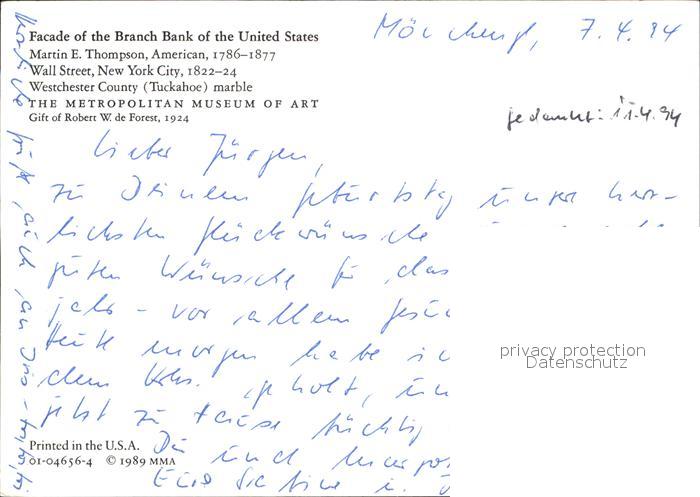 Facade of the Branch Bank of the United States
Martin E. Thompson, American, 1786–1877
Wall Street, New York City, 1822–24
Westchester County (Tuckahoe) marble
THE METROPOLITAN MUSEUM OF ART
Gift of Robert W. de Forest, 1924
7.4.94
gedankt: 11.4.94
Lieber Jürgen,
zu Deinem Geburtstag unsere herz-
lichsten Glückwünsche
guten Wünsche für das
jahr - vor allem
Heute morgen habe
dem Khs. geholt,
jetzt zu Hause tüchtig
Du und
privacy protection
Datenschutz
Printed in the U.S.A.
01-04656-4 © 1989 MMA